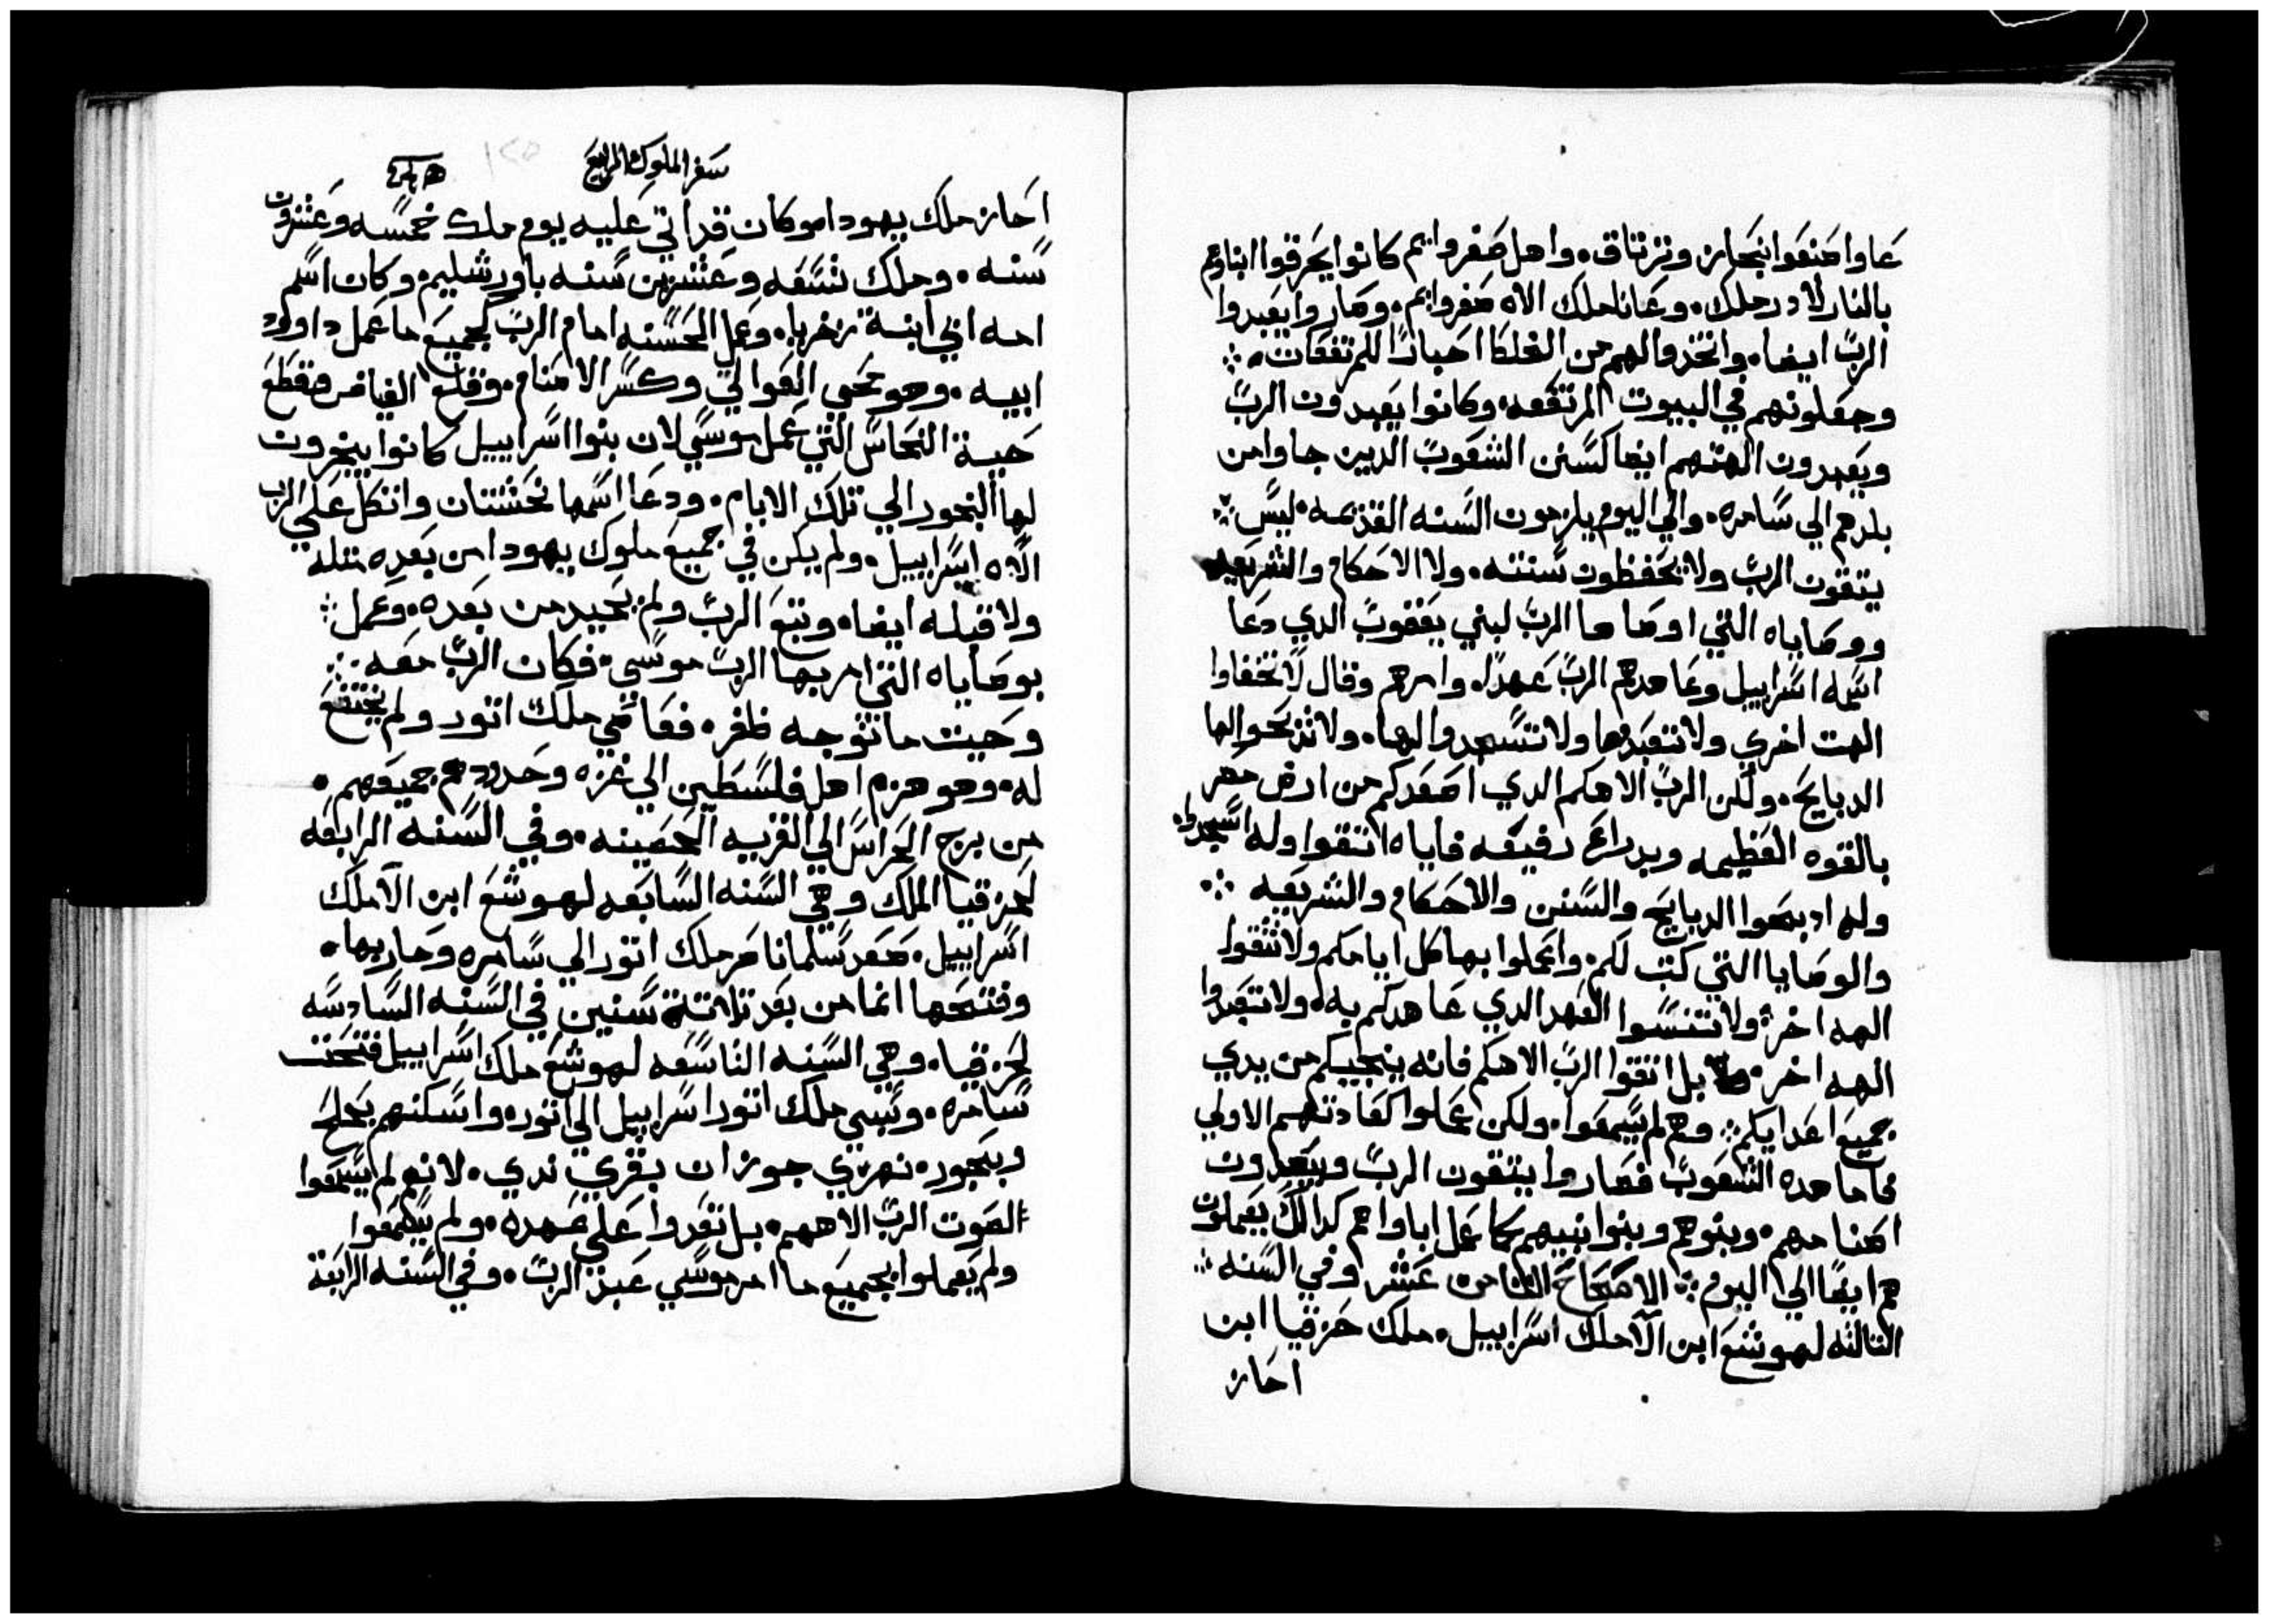 عاوا صنعوا نبحاز وترتاق. واهل صفروايم كانوا يحرقوا ابناوهم
بالنار لادرملك. وعاناملك الاه صفروايم. وصاروا يعبدوا
الرب ايضا. واتخدوا لهم من الغلطا احبارا للمرتفعات.
وجعلونهم في البيوت المرتفعه. وكانوا يعبدون الرب
ويعبدون الهتهم ايضا كسنن الشعوب الدين جاوا من
بلدهم الي سامره. والي اليوم يلزمون السنه القديمه. ليس
يتقون الرب ولا يحفظون سنته. ولا الاحكام والشريعه
ووصاياه التي اوصا ها الرب لبني يعقوب الدي دعا
اسمه اسراييل وعاهدهم الرب عهدا. وامرهم وقال لا تخفاوا
الهت اخري ولا تتعبدوها ولا تسجدوا لها. ولا تدبحوا لها
الدبايح. ولكن الرب الاهكم الدي اصعدكم من ارض مصر
بالقوه العظيمه وبدراع رفيعه فاياه اتقوا وله اسجدوا.
وله ادبحوا الدبايح والسنن والاحكام والشريعه
والوصايا التي كتب لكم. واعملوا بها كل ايامكم ولا تتقوا
الهه اخر. ولا تنسوا العهد الدي عاهدكم به. ولا تتعبدوا
الهه اخر. بل اتقوا الرب الاهكم فانه ينجيكم من يدي
جميع اعدايكم. وهم لم يسمعوا. ولكن عملوا كعادتهم الاولي
فاما هده الشعوب فصاروا يتقون الرب ويعبدون
اصنامهم. وبنوهم وبنوا بنيهم كما عمل اباواهم كدالك يعملون
هم ايضا الي اليوم. الاصحاح الثامن عشر وفي السنه
التالته لهوشع ابن الا ملك اسراييل. ملك حزقيا ابن
احاز
سفر الملوك الرابع
احاز ملك يهودا. وكان قد اتي عليه يوم ملك خمسه وعشرون
سنه. وملك تسعه وعشرين سنه باورشليم. وكان اسم
امه ابي ابنة زخريا. وعمل الحسنه امام الرب كجميع ما عمل داوود
ابيه. وهو محي العوالي وكسر الاصنام. وقلع الغياض وقطع
حية النحاس التي عمل موسي لان بنوا اسراييل كانوا يبخرون
لها البخور الي تلك الايام. ودعا اسمها نحشتان واتكل علي الرب
الاه اسراييل. ولم يكن في جميع ملوك يهودا من بعده متله
ولا قبله ايضا. وتبع الرب ولم يحيد من بعده. وعمل
بوصاياه التي امر بها الرب موسي. فكان الرب معه
وحيت ما توجه ظفر. فعاصي ملك اتور ولم يختضع
له. وهو هزم اهل فلسطين الي غزه وحدودهم جميعهم.
من برج الحراس الي القريه الحصينه. وفي السنه الرابعه
لحزقيا الملك وهي السنه السابعه لهوشع ابن الا ملك
اسراييل. صعد سلمانا صر ملك اتور الي سامره وحاربها.
وفتحها انما من بعد تلاتة سنين في السنه السادسه
لحزقيا. وهي السنه التاسعه لهوشع ملك اسراييل فتحت
سامره. وسبي ملك اتور اسراييل الي اتور. واسكنهم بحلح
وبحبور. نهري جوزان بقري ندي. لانهم لم يسمعوا
الصوت الرب الاههم. بل تعدوا علي عهده. ولم يسمعوا
ولم يعملوا بجميع ما امر موسي عبد الرب. وفي السنه الرابعة